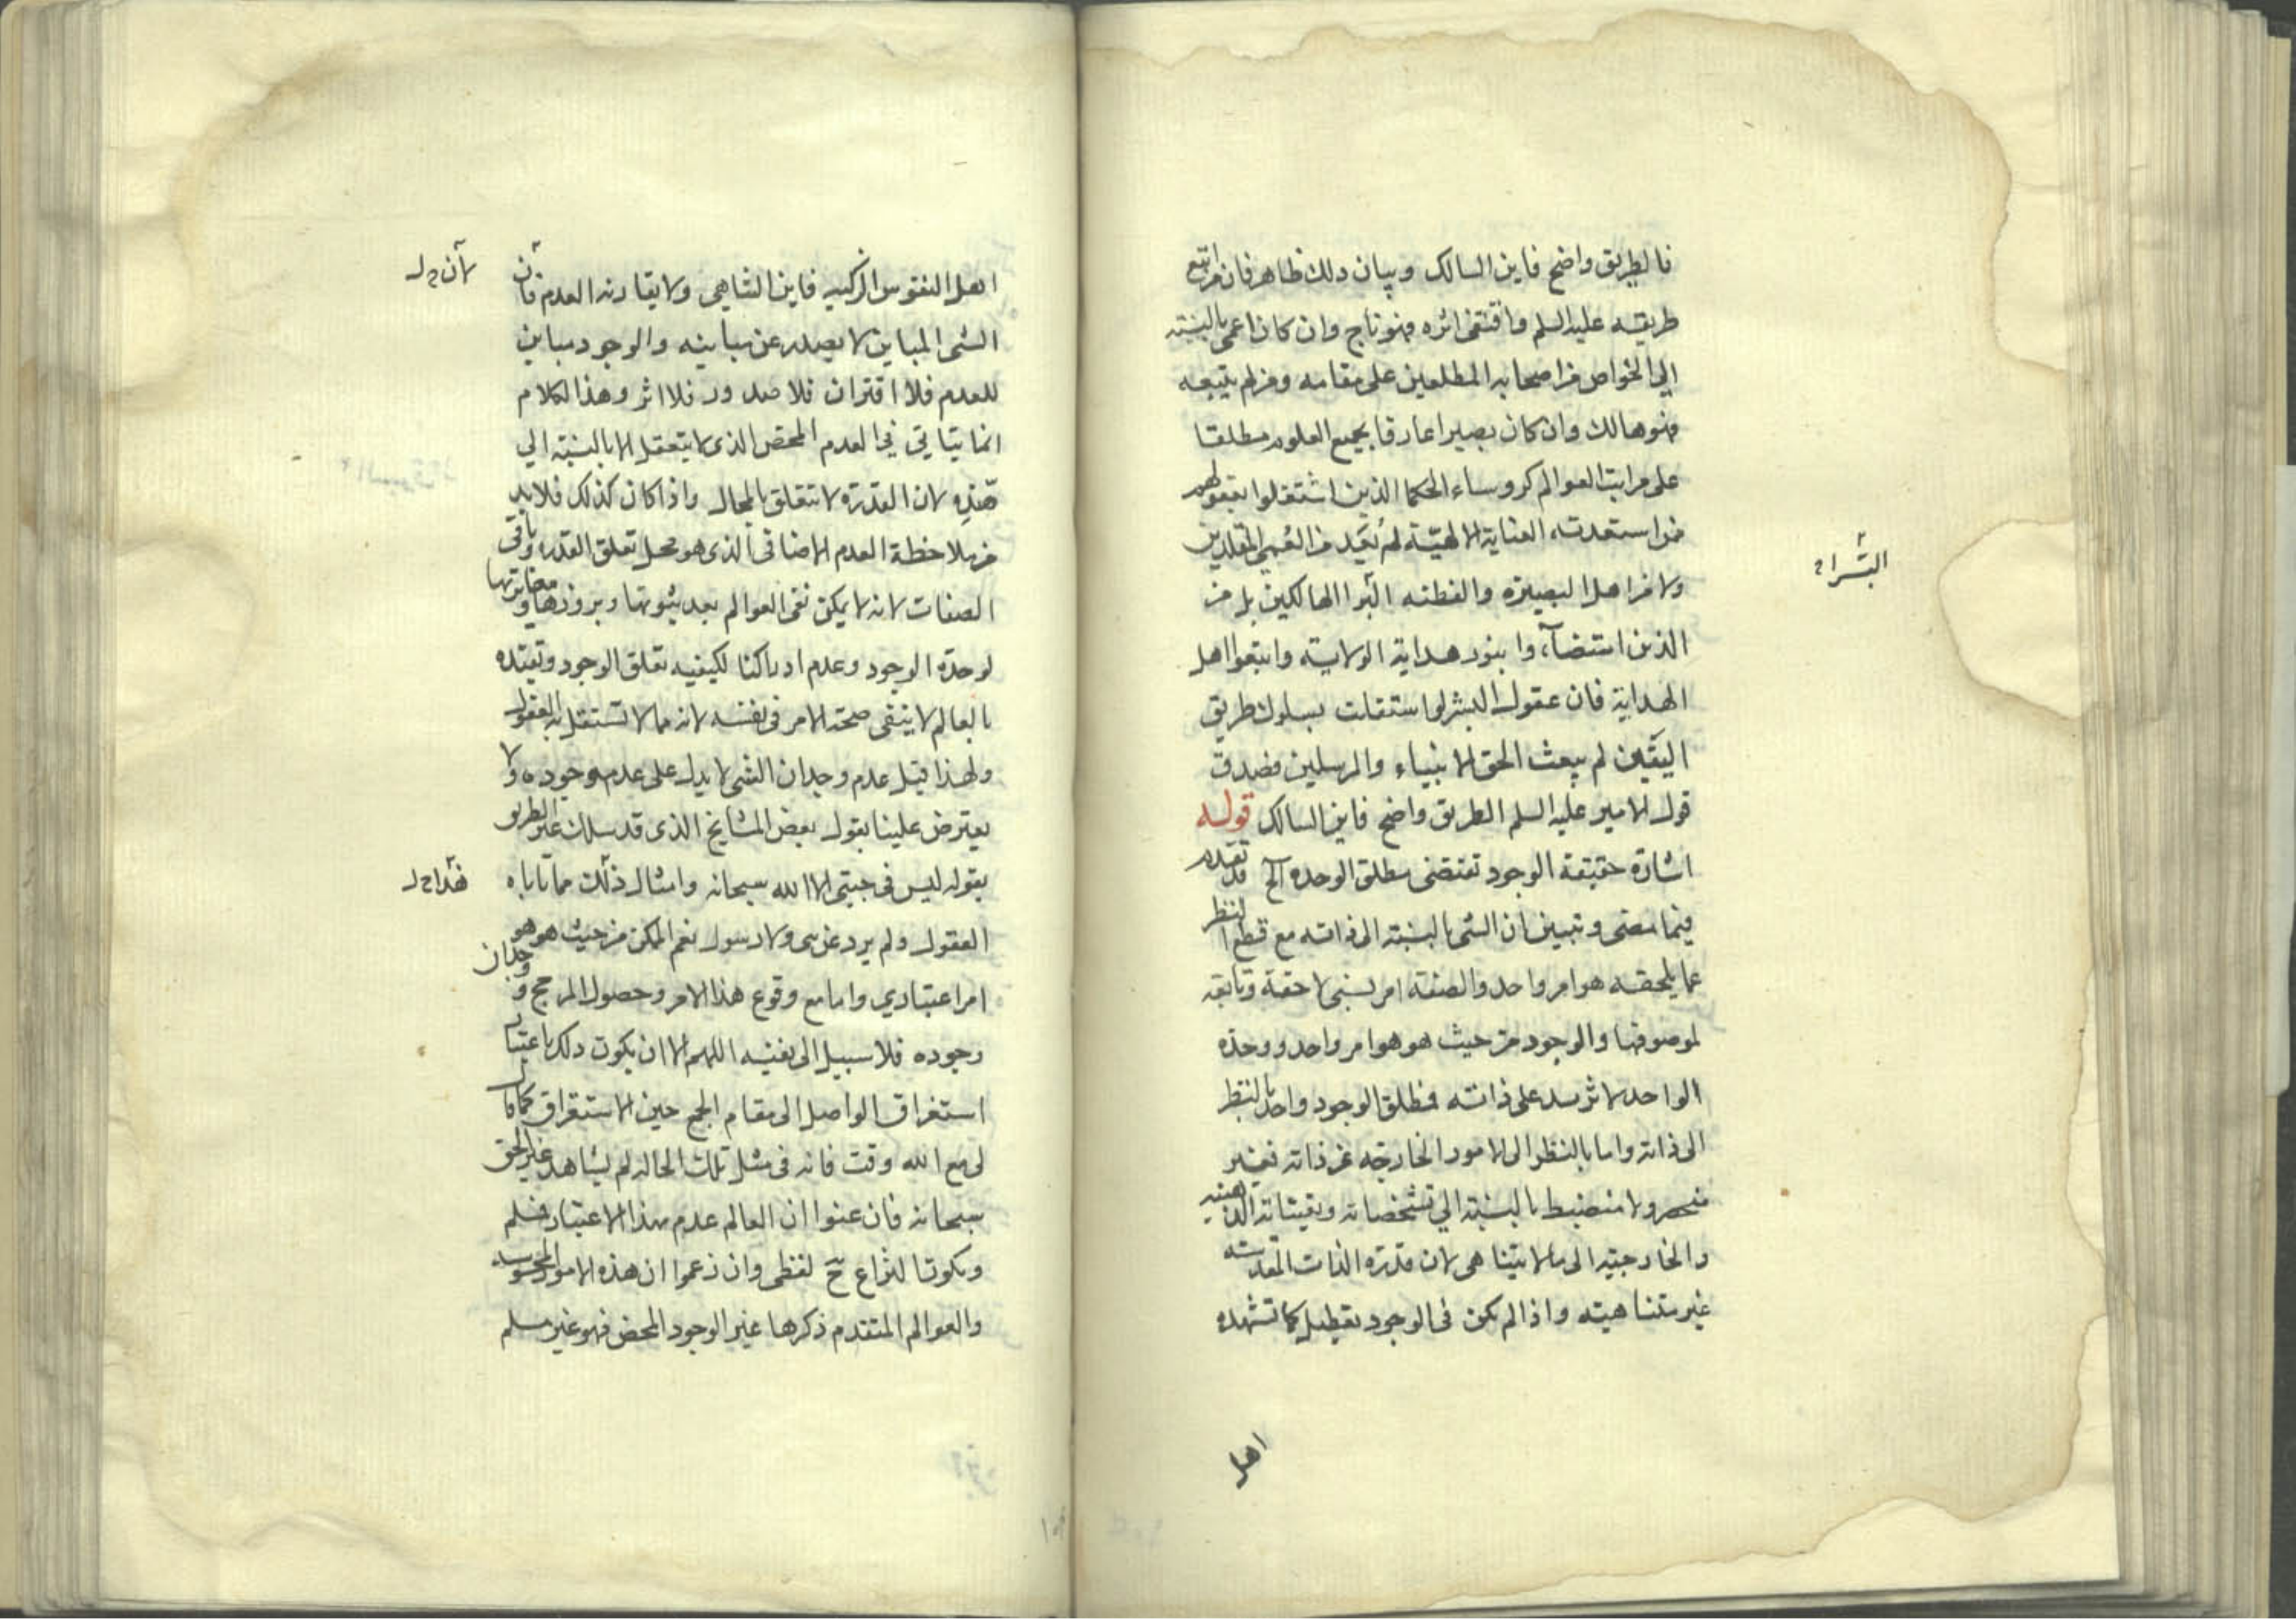 فالطريق واضح فاين السالك وبيان دلك ظاهر فان من اتبع
طريقته عليه السلم واقتفى اثره فهو ناج وان كان اعمى بالنسبته
الي الخواص من اصحابه المطلعين على مقامه ومن لم يتبعه
فهو هالك وان كان بصيرا عارفا بجميع العلوم مطلقا
على مراتب العوالم كروساء الحكما الذين اشتغلوا بعقولهم
فمن استعدته العناية الالهيّة لم يُعَد من العُمي المقلدين
ولا من اهل البصيره والفطنه الهالكين بل من
الذين استضآءوا بنور هداية الولايته واتبعوا اهل
الهداية فان عقول البشر لو استقلت بسلوك طريق
اليقين لم يبعث الحق الانبياء والمرسلين فصدق
قول الامير عليه السلم الطريق واضح فاين السالك قوله
اشارة حقيقة الوجود تقتضى مطلق الوحده الخ قد تقدم
فيما مضى وتبين ان الشى بالنسبته الى ذاته مع قطع النظر
عما يلحقه هو امر واحد والصفته امر نسبى لاحقة وتابعة
لموصوفها والوجود من حيث هو هو امر واحد ووحدة
الواحد لا تزيد على ذاته فمطلق الوجود واحد بالنظر
الى ذاته واما بالنظر الى الامور الخارجه عن ذاته فغير
منحصر ولا منضبط بالنسبته الي تشخصاته وتعيناته الذهنيه
والخارجيه الى ما لا يتناهى لان قدرة الذات المقدسته
غير متناهيته واذا لم يكن فى الوجود تعطيل كما تشهده
اهل
البشراء
اهل النفوس الزكيه فاين التناهى ولا يقارنه العدم فان
الشى المباين لا يصدر عن مباينه والوجود مباين
للعدم فلا اقتران فلا صدور فلا اثر وهذا الكلام
انما يتاتي في العدم المحض الذى لا يتعقل الا بالنسبته الي
ضده لان القدرة لا تتعلق بالمحال واذا كان كذلك فلابد
من ملاحظة العدم الاضافى الذى هو محل تعلق القدره وباقى
الصفات لانه لا يمكن نفى العوالم بعد ثبوتها وبروزها ومغايرتها
لوحدة الوجود وعدم ادراكنا لكيفيه تعلق الوجود وتقيده
بالعالم لا ينفى صحة الامر فى نفسه لانه مما لا تستقل به العقول
ولهذا قيل عدم وجدان الشى لا يدل على عدم وجوده ولا
يعترض علينا بقول بعض المشايخ الذى قد سلك غير الطريق
بقوله ليس فى جبتى الا الله سبحانه وامثال ذلك مما تاباه
العقول ولم يرد عن نبى ولا رسول نعم الممكن من حيث هو هو
امر اعتبارى واما مع وقوع هذا الامر وحصول المرجح ووجدان
وجوده فلا سبيل الى نفيه اللهم الا ان يكون دلك باعتبار
استغراق الواصل الى مقام الجمع حين الاستغراق كما قال
لى مع الله وقت فانه فى مثل تلك الحاله لم يشاهد غير الحق
سبحانه فان عنوا ان العالم عدم بهذا الاعتبار فسلم
ويكون النزاع ح لفظى وان زعموا ان هذه الامور المحسوسه
والعوالم المتقدم ذكرها غير الوجود المحض فهو غير مسلم